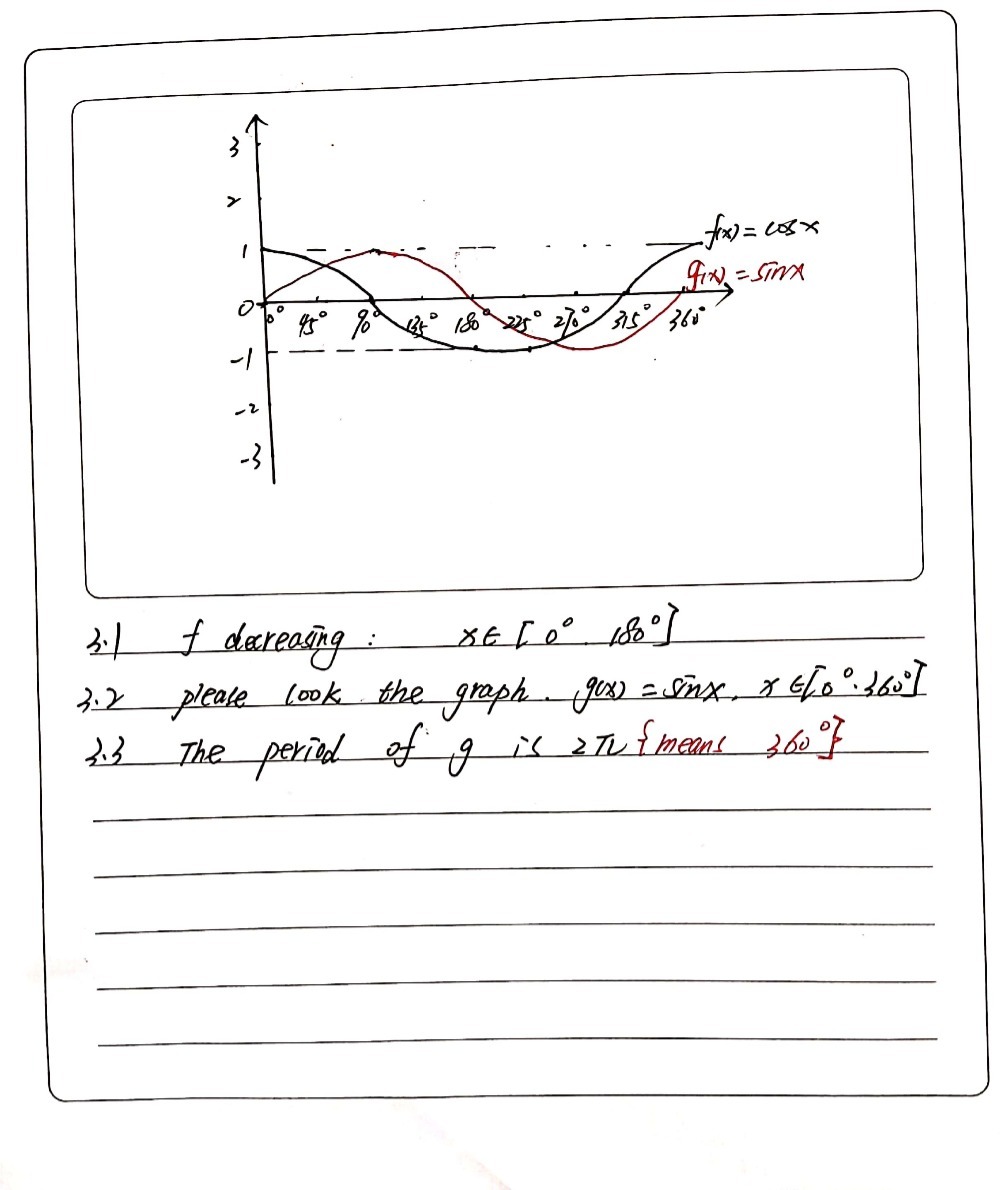 3
2
1
f(x) = cos x
g(x) = sin x
0
0° 45° 90° 135° 180° 225° 270° 315° 360°
-1
-2
-3
3.1 f decreasing : x ∈ [ 0° . 180°]
3.2 please look the graph . g(x) = sinx, x ∈ [0°.360°]
3.3 The period of g is 2π {means 360°}